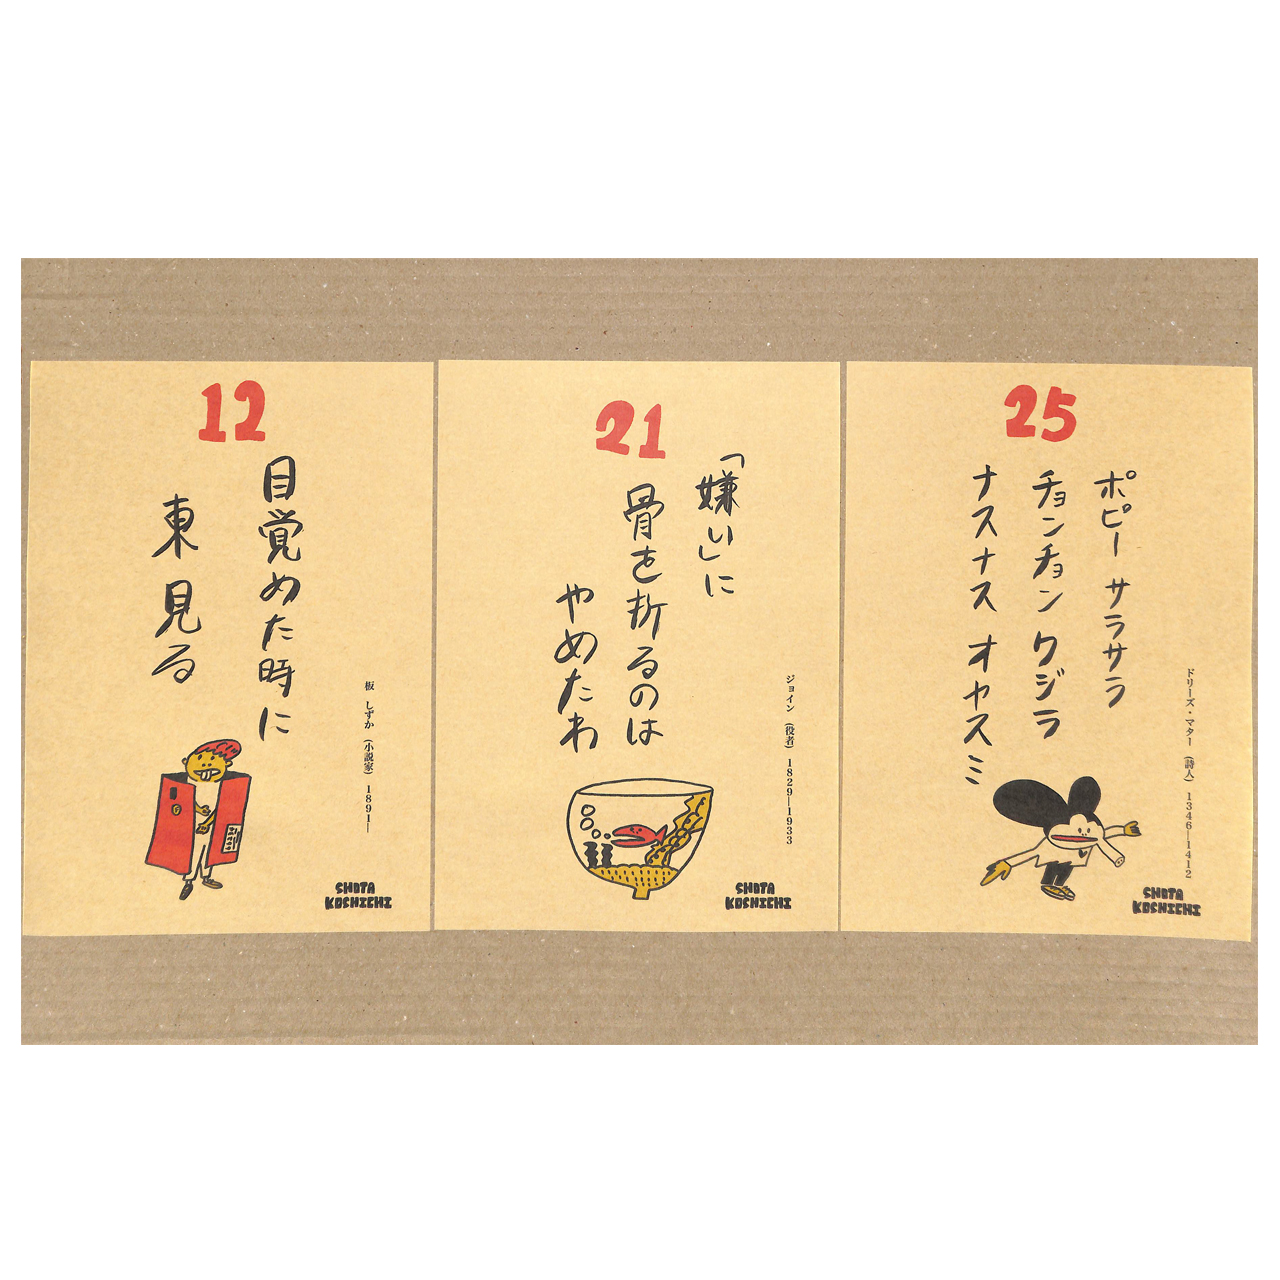 12
目覚めた時に
東見る
板 しずか (小説家) 1891―
SHOTA
KOSHICHI
21
「嫌い」に
骨を折るのは
やめたわ
ジョイン (役者) 1829―1933
SHOTA
KOSHICHI
25
ポピー サラサラ
チョンチョン クジラ
ナスナス オヤスミ
ドリーズ・マター (詩人) 1346―1412
SHOTA
KOSHICHI